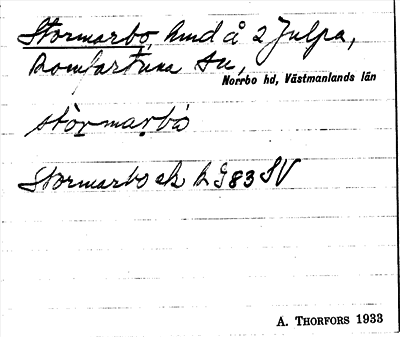 Stormarbo, hmd å 2 Julpa,
Romfartuna sn,
Norrbo hd, Västmanlands län
stòrmarbó
Stormarbo ek h G83 SV
A. THORFORS 1933